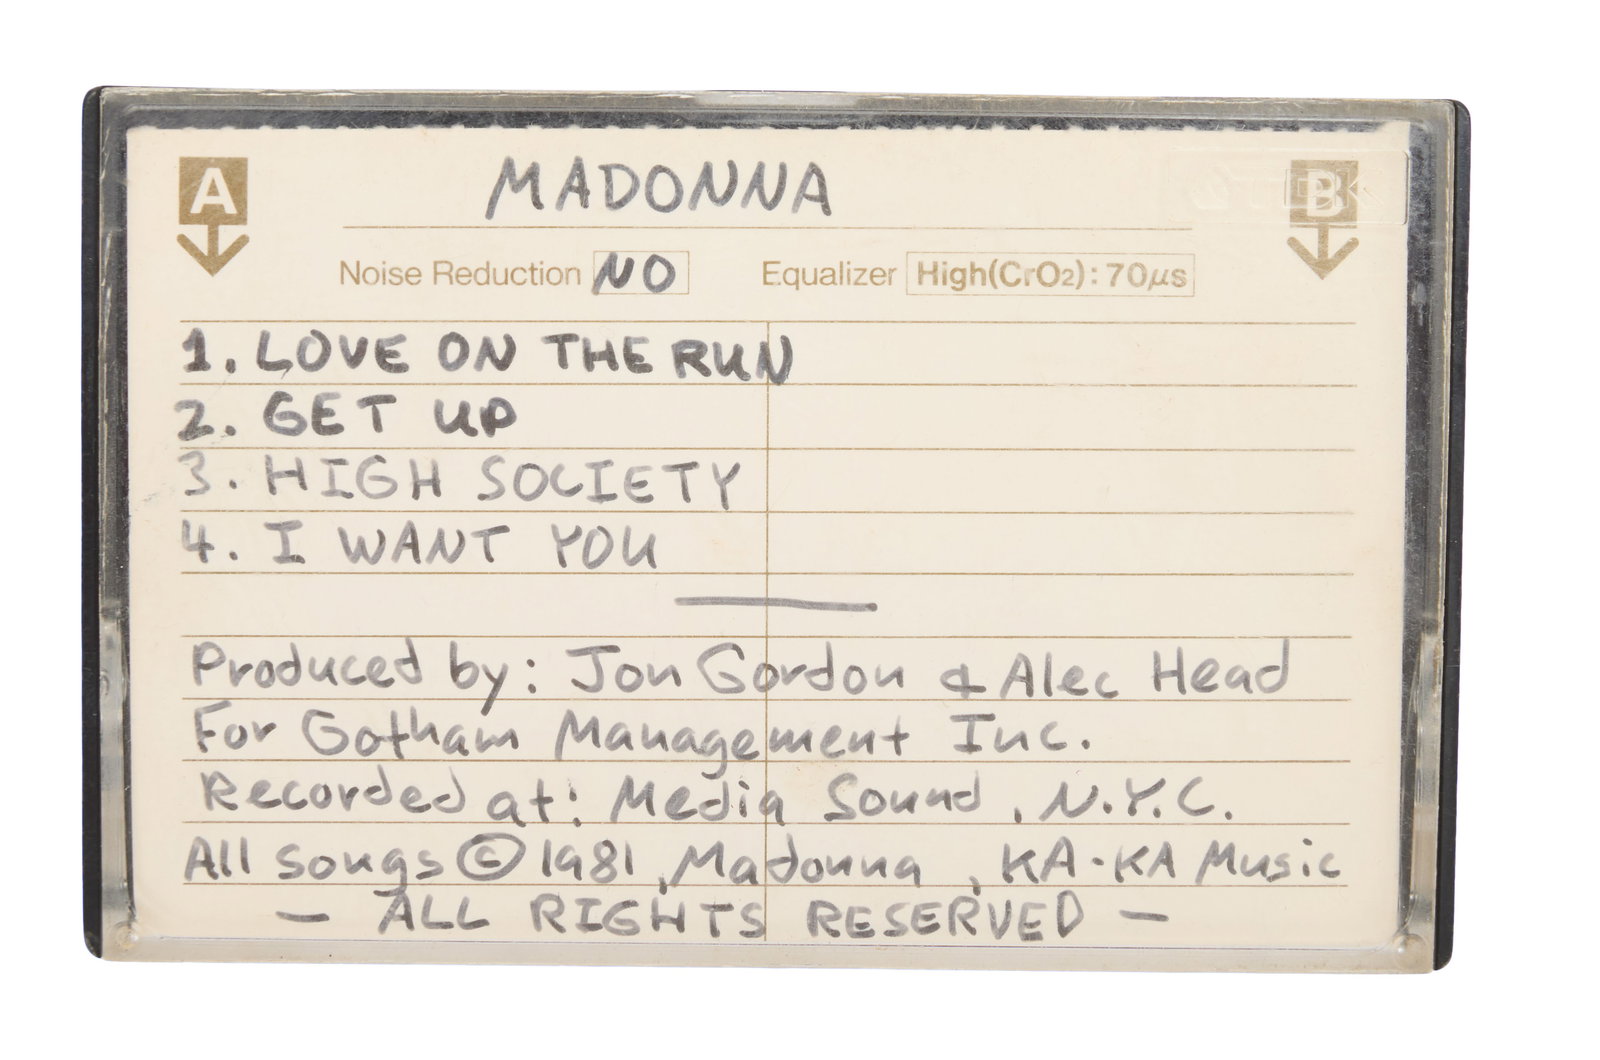 A MADONNA B
TDK
Noise Reduction NO Equalizer High(CrO2): 70µs
1. LOVE ON THE RUN
2. GET UP
3. HIGH SOCIETY
4. I WANT YOU
Produced by: Jon Gordon & Alec Head
For Gotham Management Inc.
Recorded at: Media Sound, N.Y.C.
All songs © 1981, Madonna, KA-KA Music
— ALL RIGHTS RESERVED —